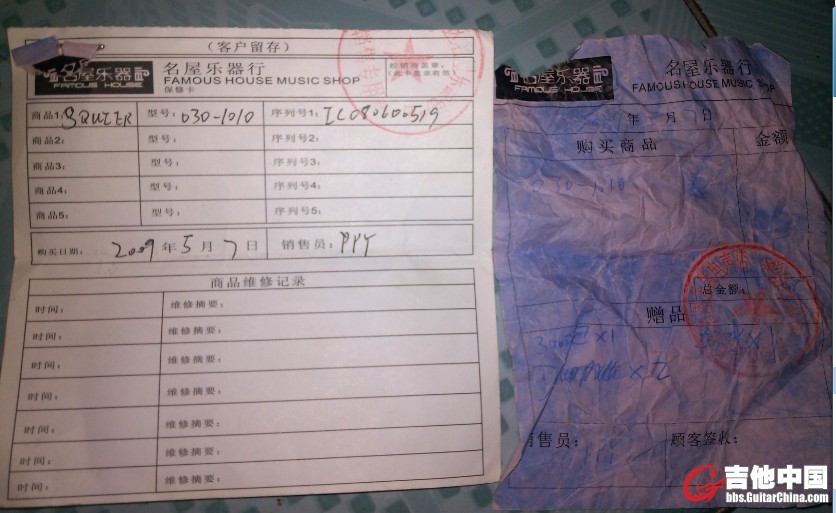 (客户留存)
名屋乐器
FAMOUS HOUSE
名屋乐器行
FAMOUS HOUSE MUSIC SHOP
保修卡
经销商盖章:
(此卡盖章有效)
商品1: SQUIER 型号: 030-1010 序列号1: IC080600519
商品2: 型号: 序列号2:
商品3: 型号: 序列号3:
商品4: 型号: 序列号4:
商品5: 型号: 序列号5:
购买日期: 2009年5月7日 销售员: PPY
商品维修记录
时间: 维修摘要:
时间: 维修摘要:
时间: 维修摘要:
时间: 维修摘要:
时间: 维修摘要:
时间: 维修摘要:
时间: 维修摘要:
名屋乐器
FAMOUS HOUSE
名屋乐器行
FAMOUS HOUSE MUSIC SHOP
年 月 日
购买商品 金额
总金额:
赠品
销售员: 顾客签收:
吉他中国
bbs.GuitarChina.com